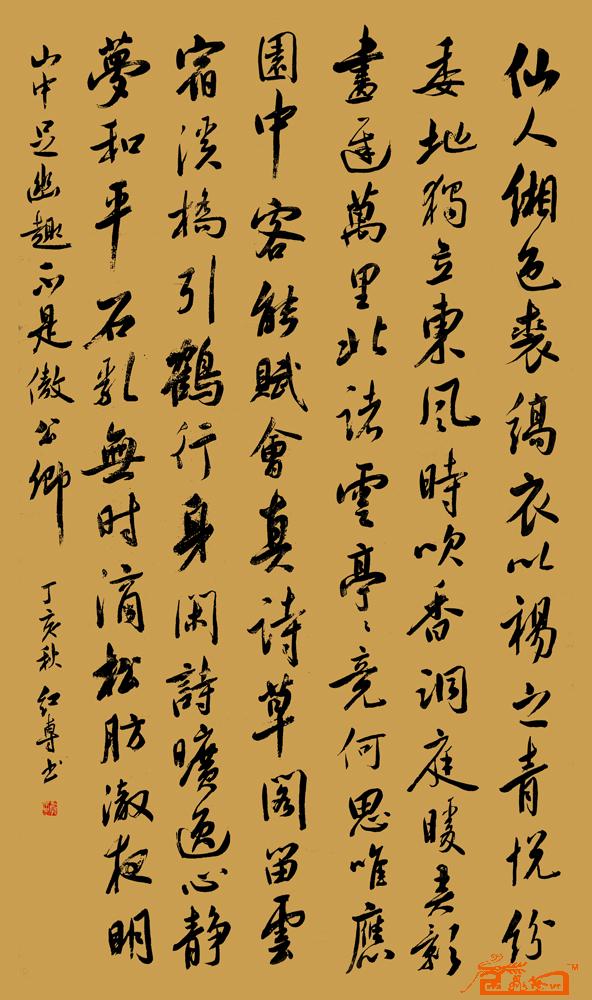 仙人緗色裘縞衣以裼之青帨紛
委地獨立東風時吹香洞庭暖弄影
畫遲萬里北諸雲亭亭竟何思唯應
園中客能賦會真詩草閣留雲
宿溪橋引鶴行身閑詩曠逸心靜
夢和平石乳無时滴松肪澈夜明
山中足幽趣不是傲公卿
丁亥秋 紅專书